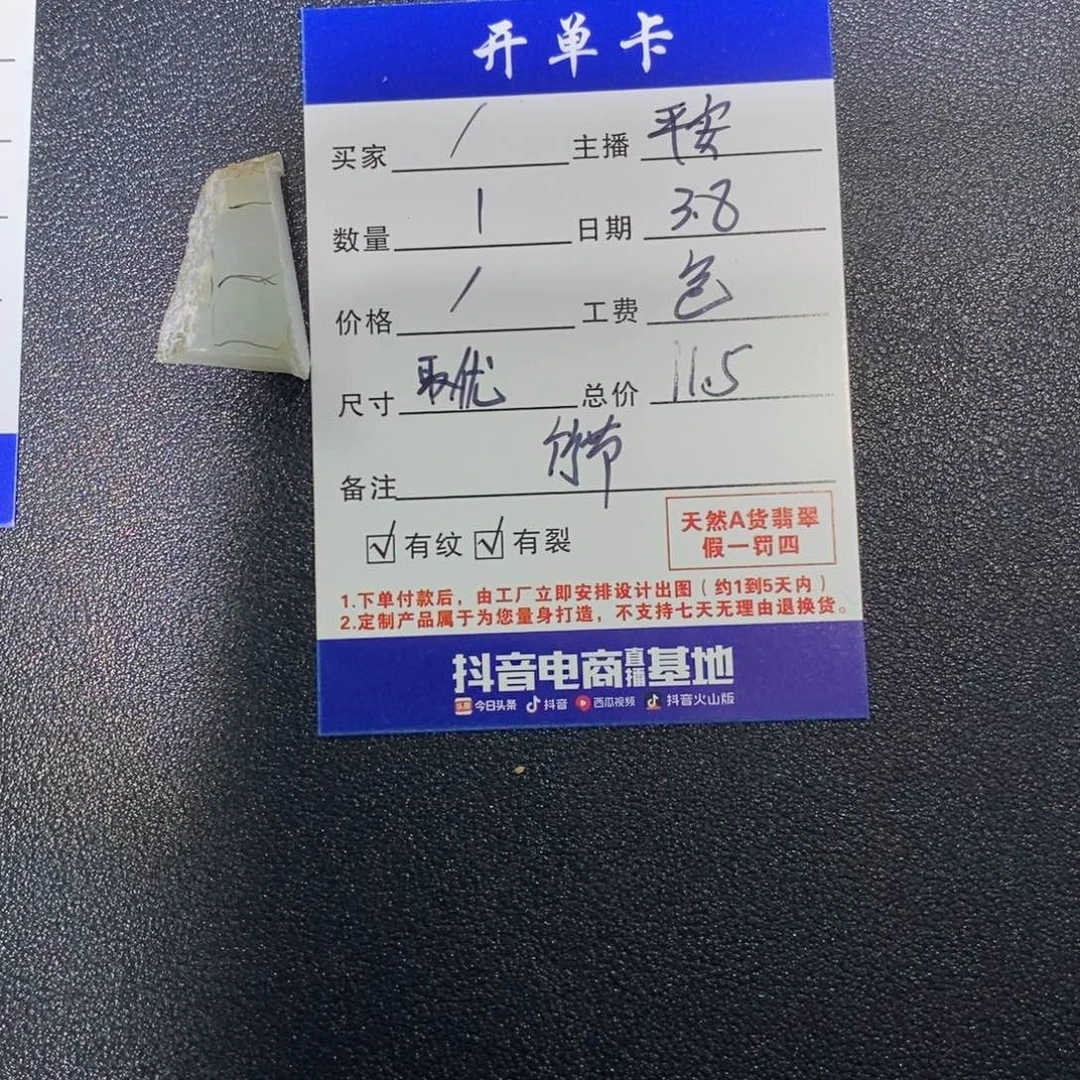 开单卡
买家 / 主播 平安
数量 1 日期 3.8
价格 / 工费 包
尺寸 取优 总价 11.5
备注 竹节
☑有纹 ☑有裂
天然A货翡翠
假一罚四
1.下单付款后，由工厂立即安排设计出图（约1到5天内）
2.定制产品属于为您量身打造，不支持七天无理由退换货。
抖音电商直播基地
头条 今日头条 抖音 西瓜视频 抖音火山版